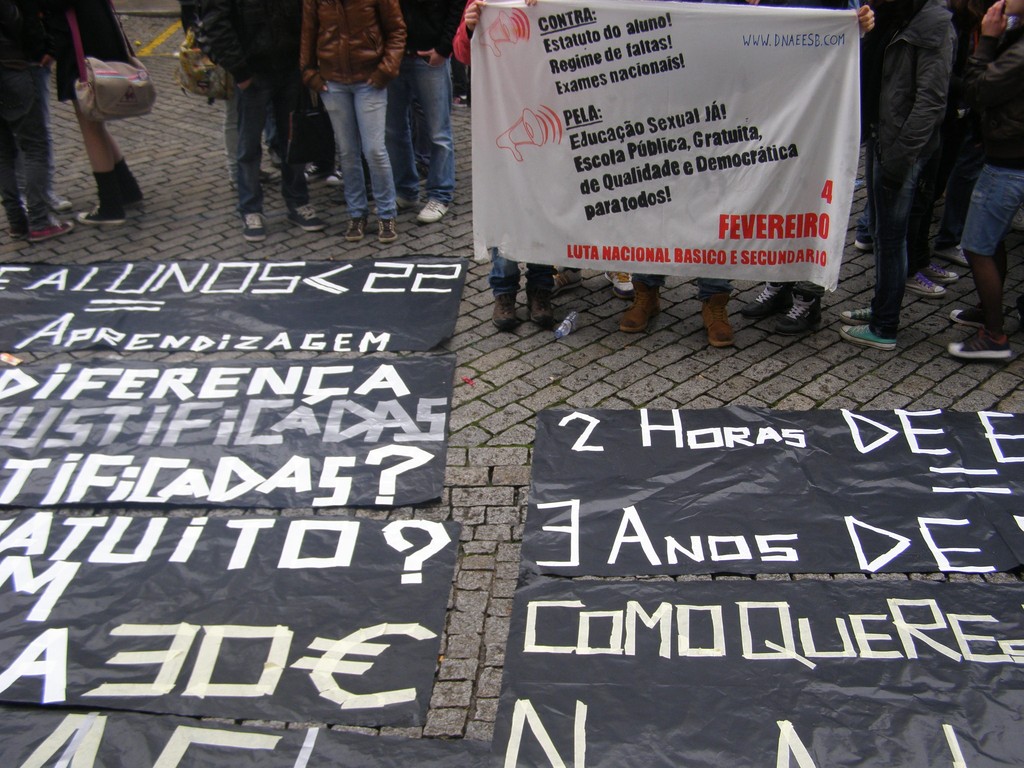 CONTRA:
Estatuto do aluno!
Regime de faltas!
Exames nacionais!
WWW.DNAEESB.COM
PELA:
Educação Sexual JÁ!
Escola Pública, Gratuita,
de Qualidade e Democrática
para todos!
4
FEVEREIRO
LUTA NACIONAL BASICO E SECUNDARIO
E ALUNOS < 22
=
APRENDIZAGEM
DIFERENÇA
USTIFICADAS
TIFICADAS?
ATUITO?
M
A 30€
2 HORAS DE E
=
3 ANOS DE E
COMO QUERES
N